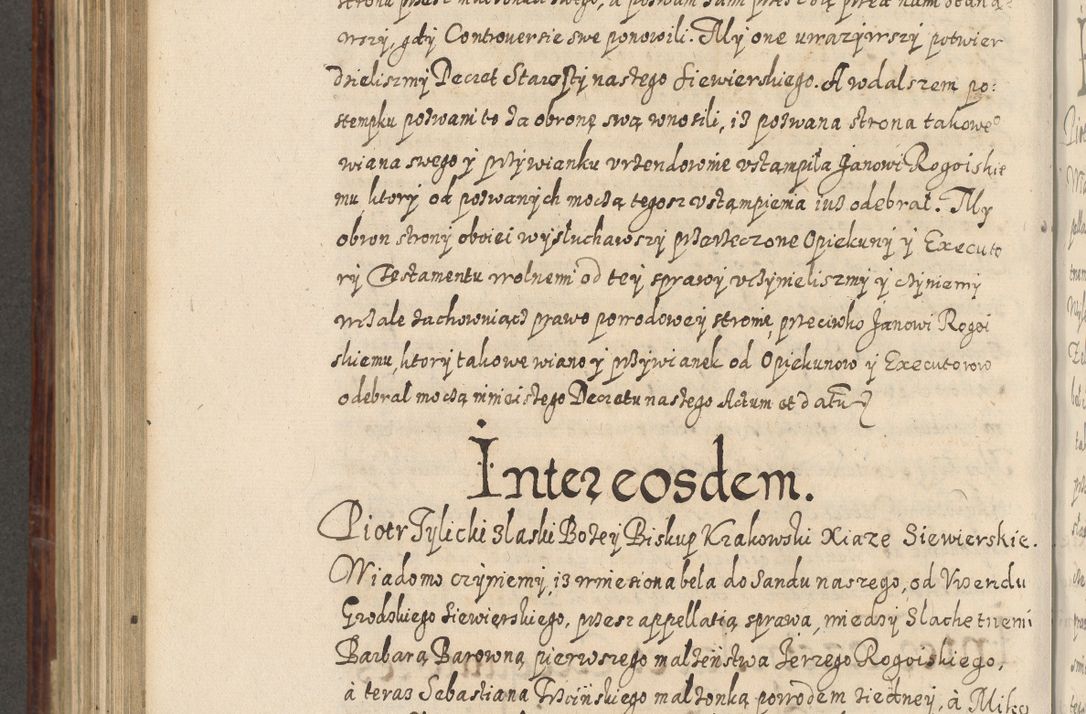 wszy, gdy Controuersie swe ponowili. My one uwazywszy potwier
dzieliszmy Decret Starosty naszego Siewierskiego. A w dalszem po:
stempku pozwani to za obronę swą wnosili, iż pozwana strona takowe°
wiana swego y przywianku vrzendownie vstąmpiła Janowi Rogoiskie
mu ktory od pozwanych mocżą tegosz vstąmpienia iuż odebrał. My
obron strony oboiei wysłuchawszy przerzeczone Opiekuny y Executo
ry Testamentu wolnemi od tey sprawy vczynieliszmy y czyniemy
wcżale zachowuiącz prawo powodowey stronie, przeciwko Janowi Rogoi
skiemu, ktory takowe wiano y przywianek od Opiekunow y Executorow
odebrał mocżą ninieiszego Decretu naszego Actum et datū
Inter eosdem.
Piotr Tylicki z łaski Bożey Biskup Krakowski Xiaże Siewierskie.
Wiadomo czyniemy, iż wniesiona beła do Sandu naszego, od Vrzendu
Grodzkiego Siewierskiego, przesz appellatią sprawa, miedzy Slachetnemi
Barbarą Barowną pierwszego małżeństwa Jerzego Rogoiskiego,
à teraz Sebastiana Trzcińskiego małżonką powodem z iedney, à Miko